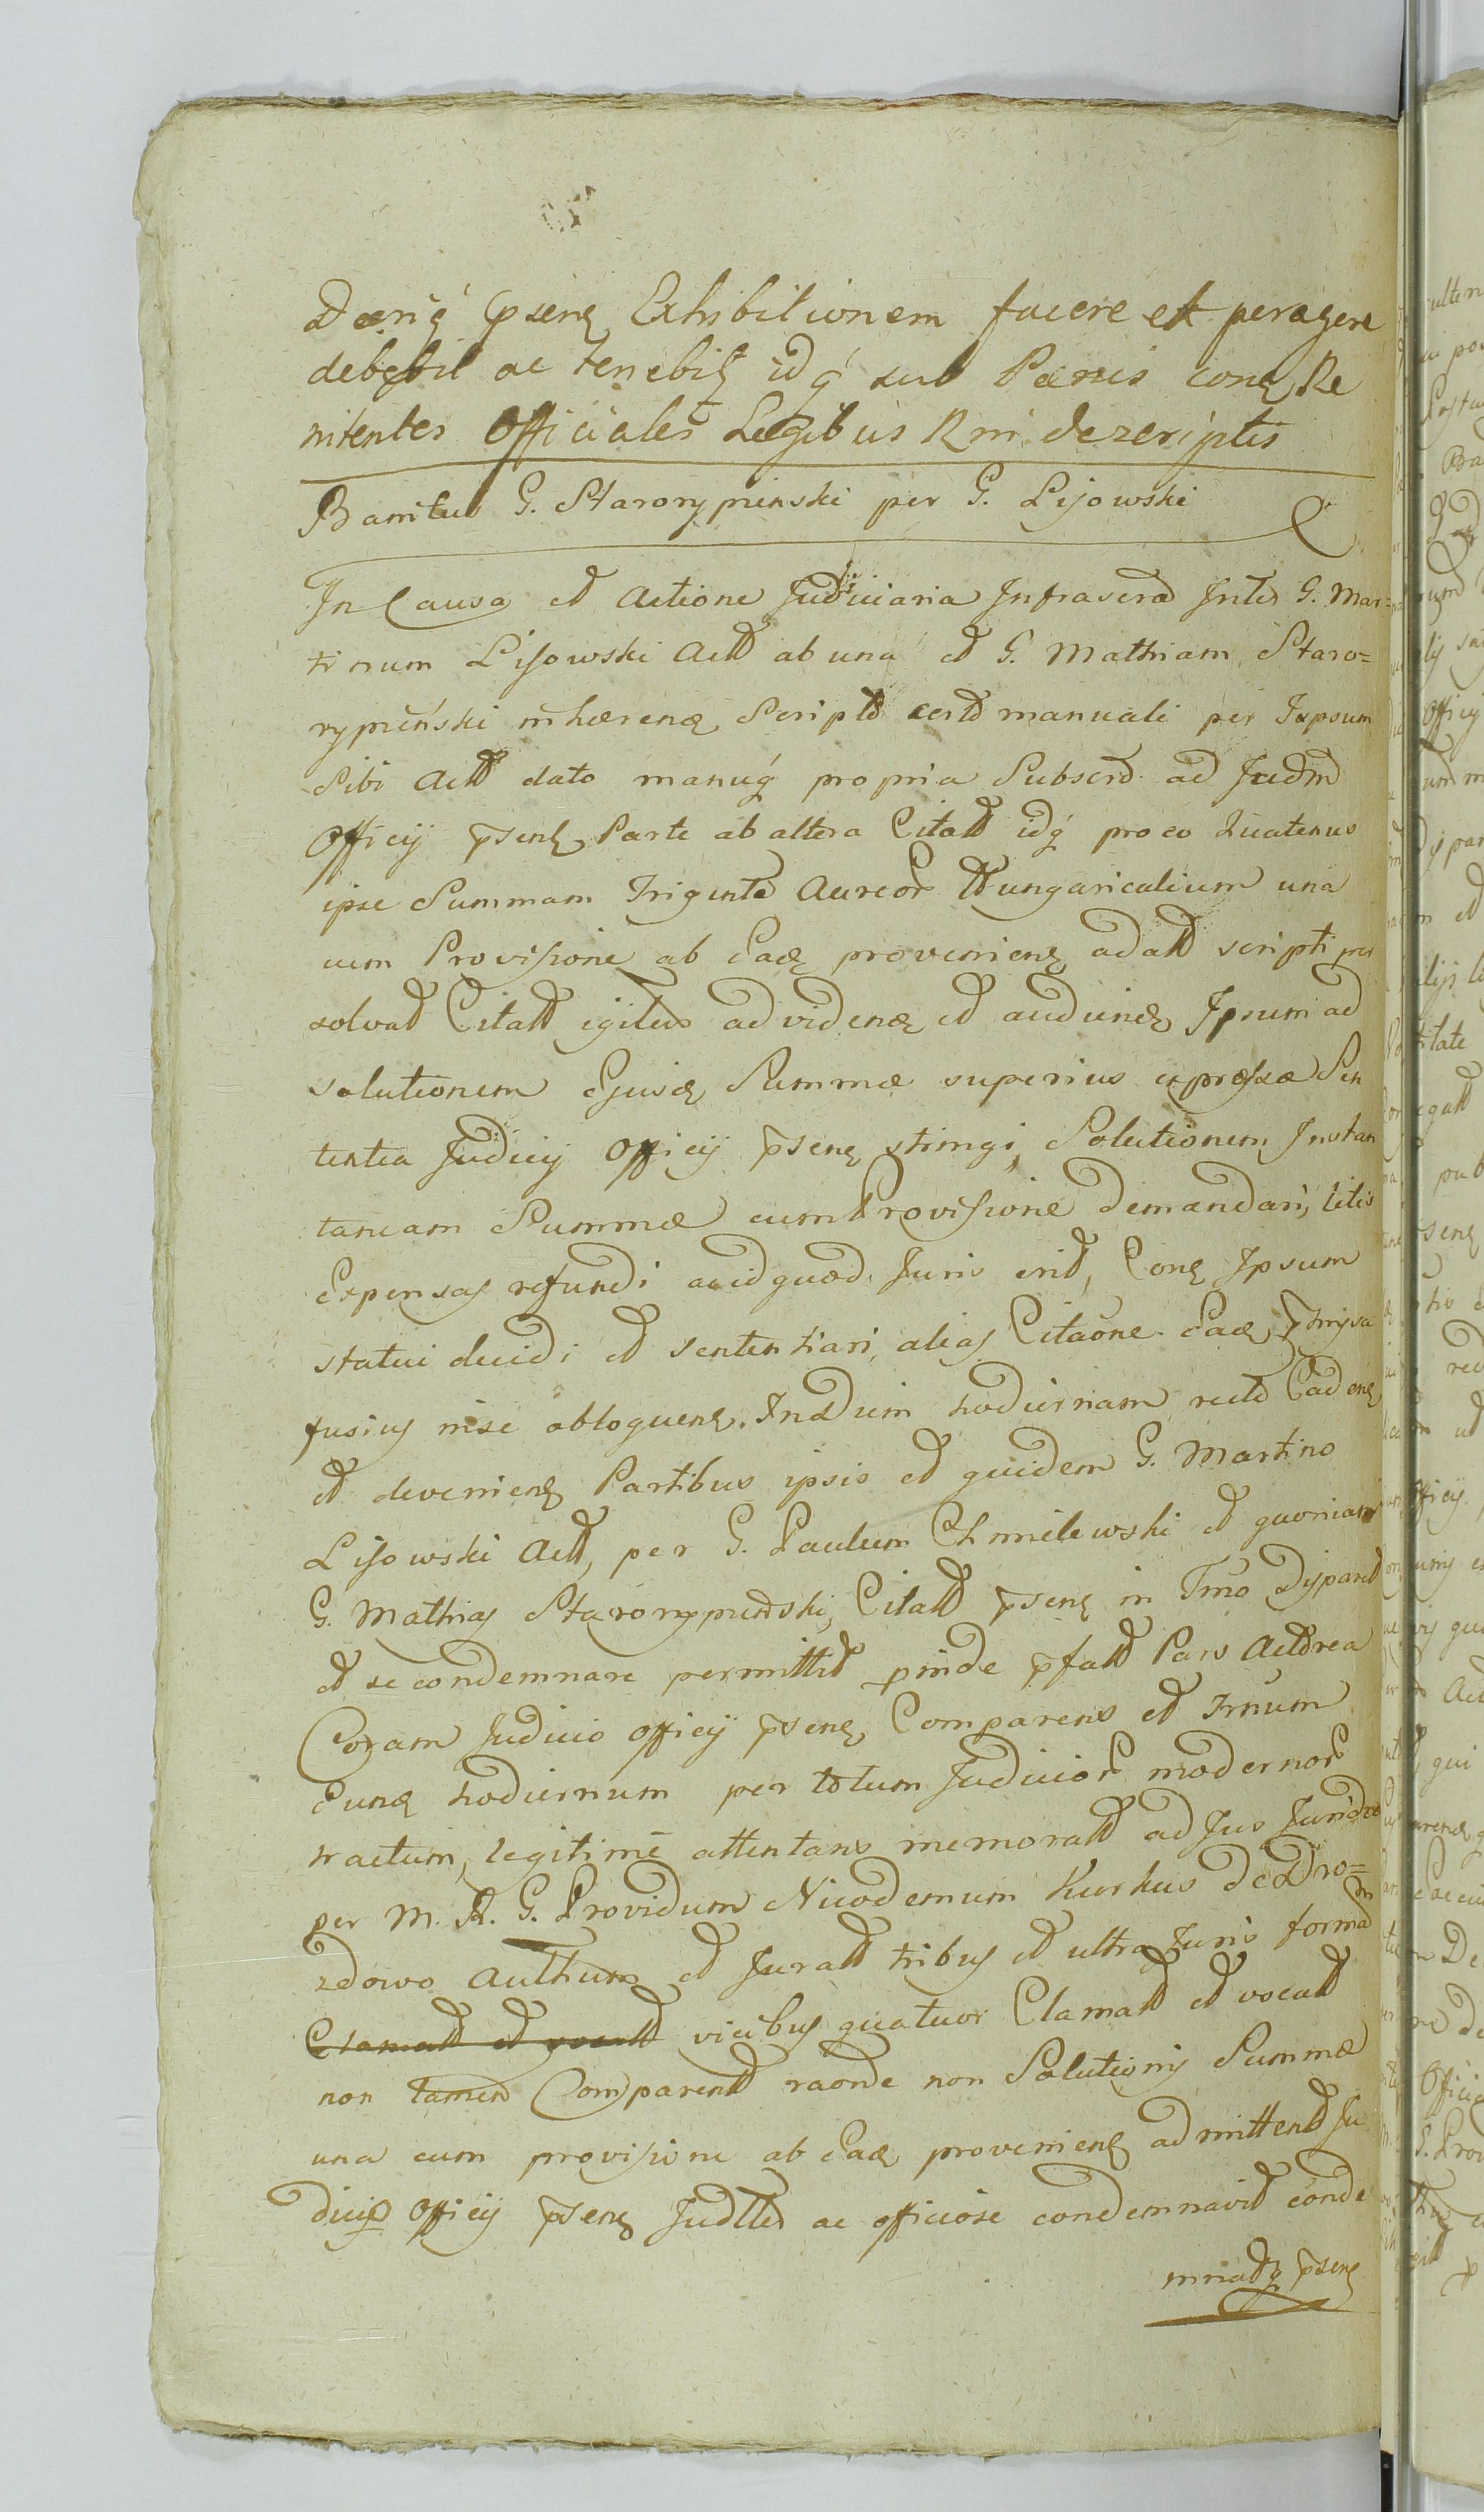 Exhibitionem facere et peragere
debebit ac tenebit idq́ sub Pœnis Re
nitentes Officiales Legibus Rni dezcriptis
Banitus G. Starorypinski per G. Lisowski
In Causa et Actione Judiciaria Infrascrõ Inter G. Mar=
tinum Lisowski Actt ab una et G. Mathiam Staro=
rypiński inhærenð Script manuali per Ipsum
Sibi Actt dato manuq́ propria Subscrð ad Judm
Officij p̃senț Parte ab altera Citatt idq́ pro eo Quatenus
ipse Summam Triginta Aureor̃ Hungaricalium una
cum Provisione ab Eað provenienț scripti per
solvat Citatt igitur ad videnð et audienð Ipsum ad
solutionem Ejusð Summæ superius expressæ Sen
tentia Judicij Officij p̃senț stringi, Solutionem Instan
taneam Summæ cum Provisione demandari, litis
Expensas refundi ac id quod Juris erit, Ipsum
statui decidi et sententiari, alias Citaõne Eað
fusius obloquenț. In Diem hodiernam Cadenț
et devenienț Partibus ipsis et quidem G. Martino
Lisowski Actt, per G. Paulum Chmielewski et quoniam
G. Mathias Starorypinski, Citatt p̃senț in Trno Disparet
et se condemnare permittit proinde p̃fatt Pars Actorea
Coram Judicio officij p̃senț Comparens et Trñum
Eunð hodiernum per totum Judicior̃ modernor̃
tractum, legitimè attentans memoratt ad Jus
per M. R. G. Providum Nicodemum Kurkus de Dro=
zdowo et Juratt tribus et ultra Juris formam
Clamatt et vocatt vicibus quatuor Clamatt et vocatt
non tamen Comparentt raõne non Solutionis Summæ
una cum provisione ab Eað provenienț admittent Ju
dicij Officij p̃senț Judltr ac officiose condemnavit conde
mnatq́ p̃senț